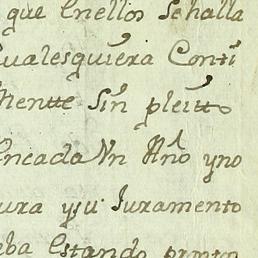 que Enellos Sehalla
ualesquiera Conti
mente Sin pleitto
encada Vn Año yno
ura ysu Juramento
eba Estando pronto